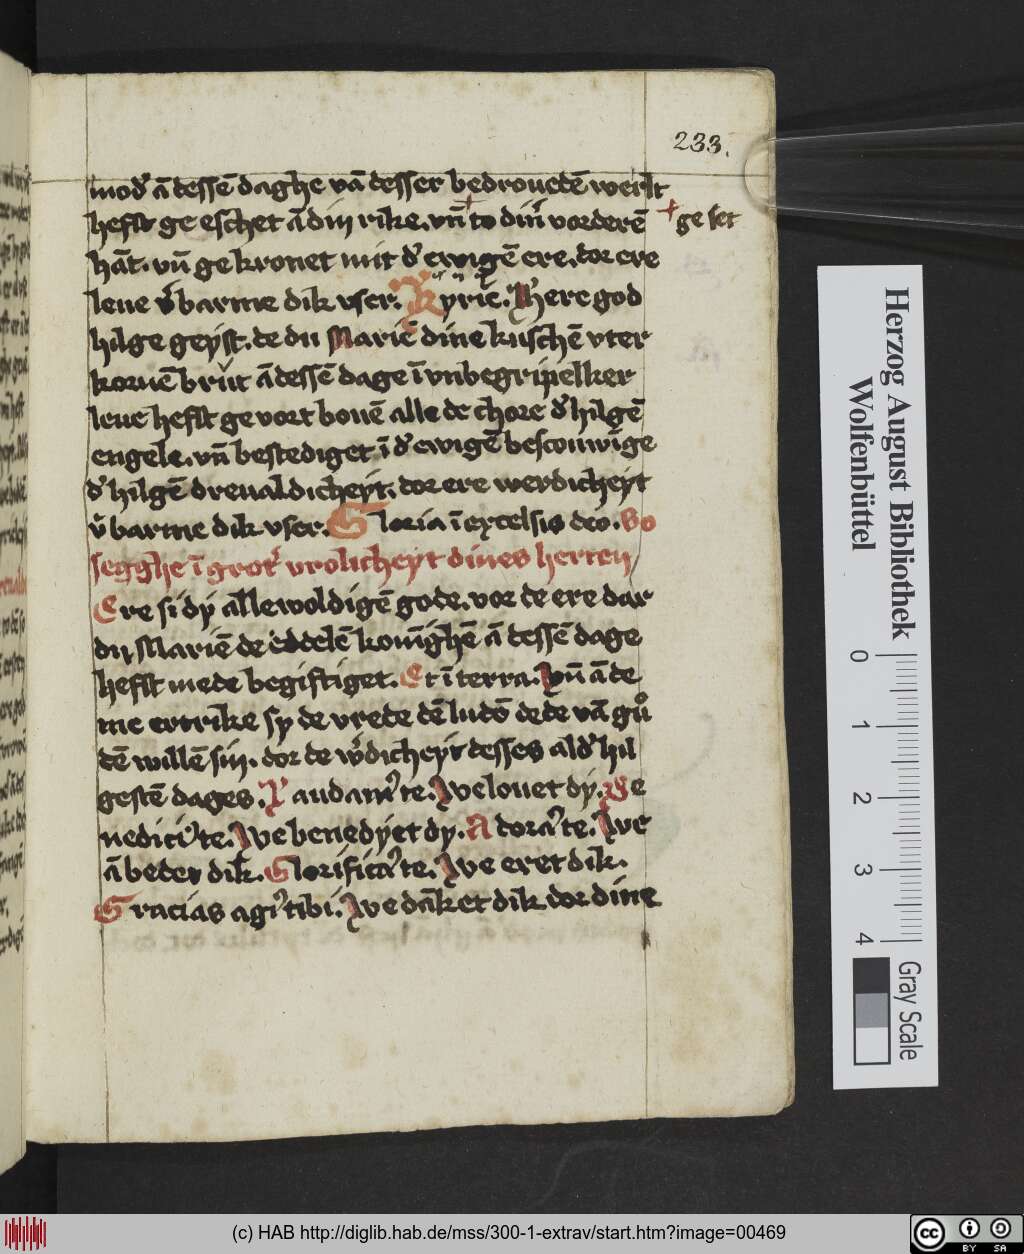 233.
mod᷈ā dessē daghe vā desser bedrouedē werlt
hefst ge eschet ā din rike. vn̄ + to din᷈ vorderē + ge set
hāt. vn̄ ge kronet mit d᷈ ewigē ere. dor ere
leue v᷈barme dik vser. Kyrie. Here god
hilge geyst. de du Mariē dine kuschē vter
korнē brut ā dessē dage ī vnbegripelker
leue hefst ge vort bouē alle de chore d᷈ hilgē
engele. vn̄ bestediget ī d᷈ ewigē bescouwīge
d᷈ hilgē dreualdicheyt. dor ere werdicheyt
v᷈barme dik vser. Gloria ī excelsis deo. So
segghe ī grot᷈ vrolicheyt dines herten
Ere si dy allewoldigē gode. vor de ere dar
du Mariē de eddelē konīghē ā dessē dage
hefst mede begiftiget. Et ī terra. Vn̄ ā de
me ertrike sy de vrede dē ludē dede vā gů
dē willē sin. dor de w᷈dicheyt desses ald᷈ hil
gestē dages. Laudam᷈ te. We louet dy. Be
nedici᷈ te. We benedyet dy. Adora᷈ te. We
ā beder dik. Glorifica᷈ te. We eret dik.
Gracias agi᷈ tibi. We dāket dik dor dine
Herzog August Bibliothek
Wolfenbüttel
0 1 2 3 4
Gray Scale
(c) HAB http://diglib.hab.de/mss/300-1-extrav/start.htm?image=00469
cc BY SA